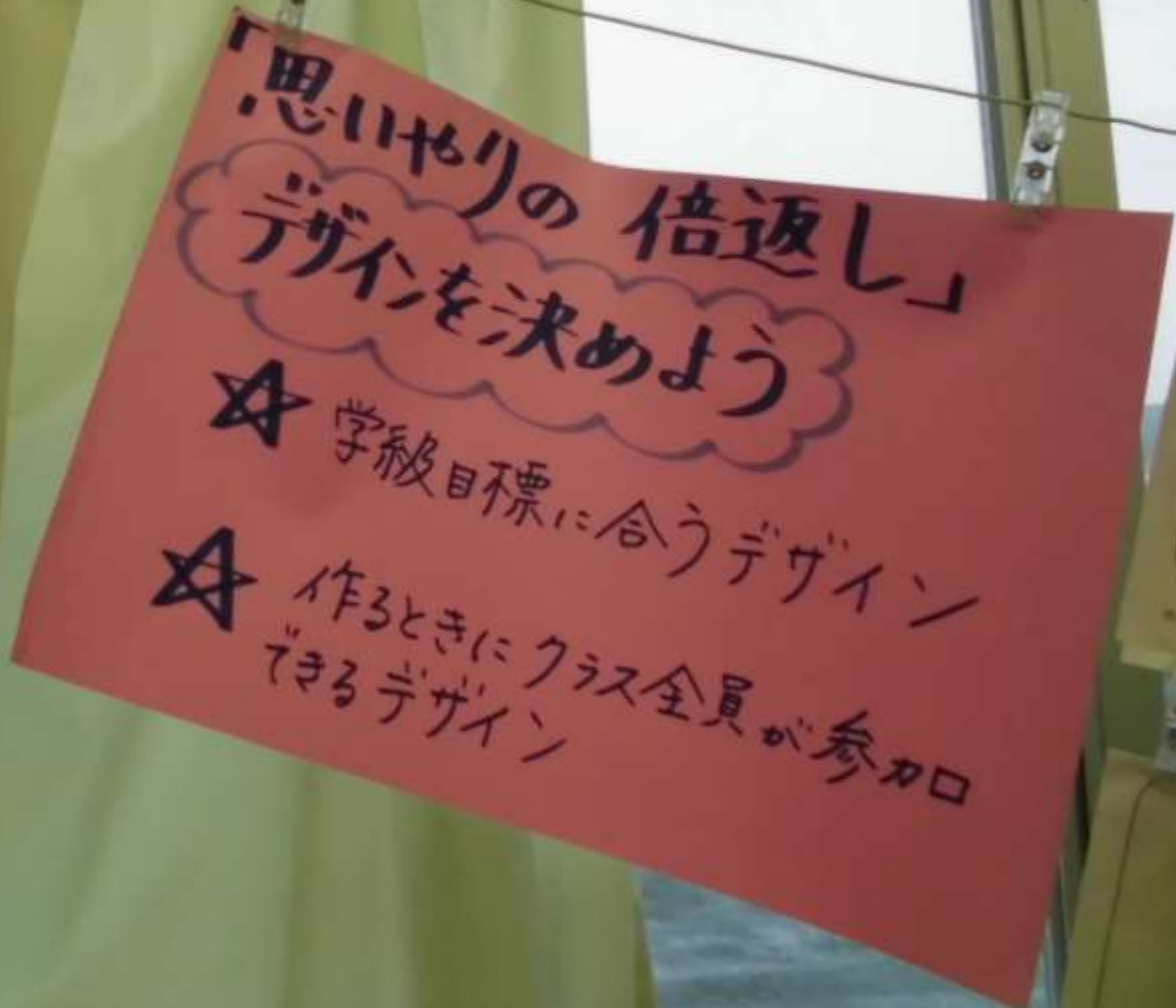 「思いやりの 倍返し」
デザインを決めよう
☆ 学級目標に合うデザイン
☆ 作るときにクラス全員が参加
できるデザイン